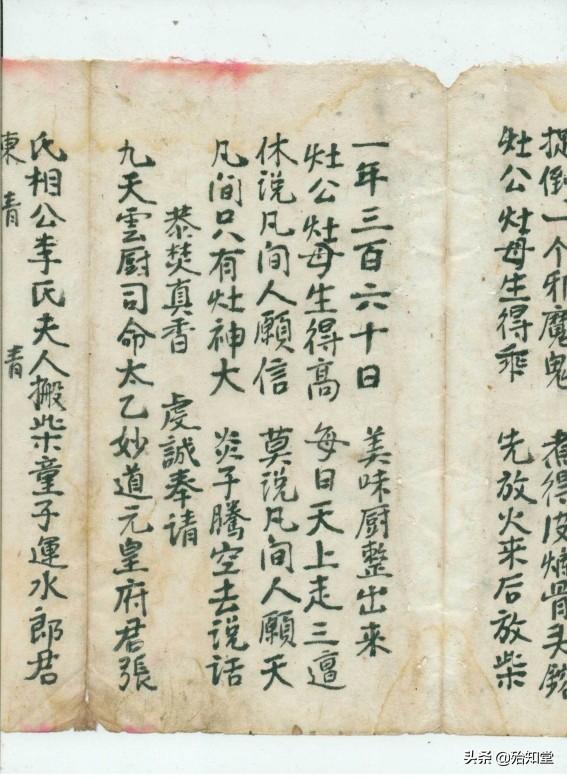 捉倒一个邪魔鬼 煮得皮骨头
灶公灶母生得乖 先放火来后放柴
一年三百六十日 美味厨整出来
灶公灶母生得高 每日天上走三遍
休说凡间人願信 莫说凡间人願天
凡间只有灶神大 炎子騰空去说话
恭焚真香 虔誠奉请
九天雲厨司命太乙妙道元皇府君張
氏相公李氏夫人搬柴童子運水郎君
東青 青
头条 @殆知堂